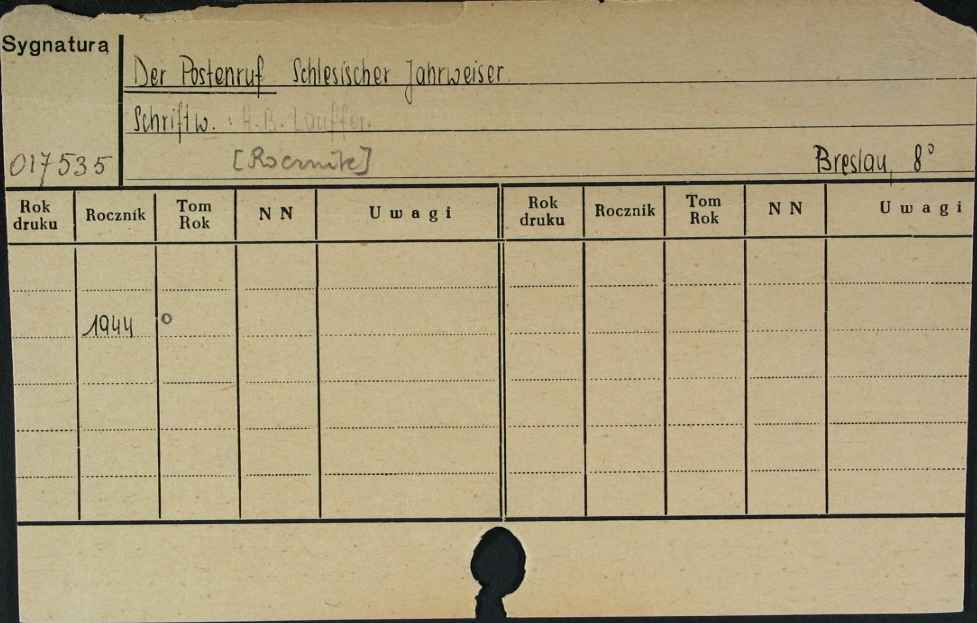 Sygnatura
Der Postenruf Schlesischer Jahrweiser
Schriftw. : H.B. Lauffer.
017535 [Rocznik] Breslau, 8°
Rok druku Rocznik Tom Rok N N Uwagi Rok druku Rocznik Tom Rok N N Uwagi
1944 o